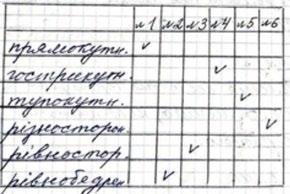 №1 №2 №3 №4 №5 №6
прямокутн. ✓
гострокутн. ✓
тупокутн. ✓
різносторон. ✓
рівностор. ✓
рівнобедрен ✓